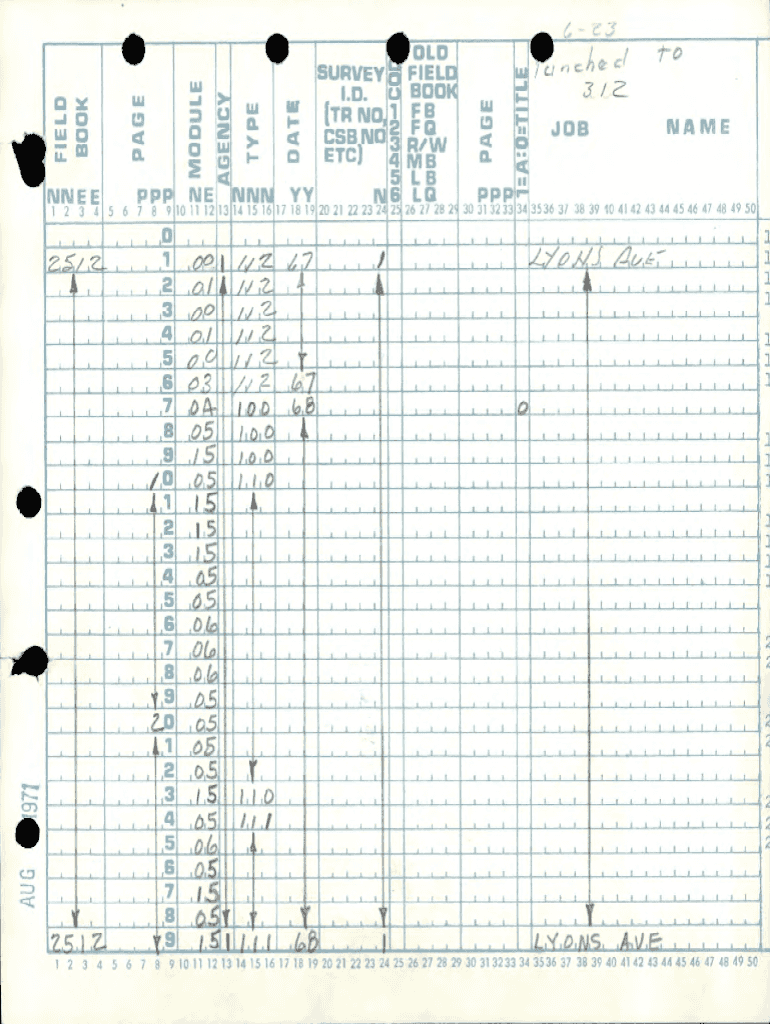 6-23
Punched to
312
FIELD BOOK PAGE MODULE AGENCY TYPE DATE SURVEY I.D. (TR NO, CSB NO ETC) COL OLD FIELD BOOK PAGE 1=A:0=TITLE JOB NAME
1 FB
2 FQ
3 R/W
4 MB
5 LB
6 LQ
NNEE PPP NE NNN YY N PPP
1 2 3 4 5 6 7 8 9 10 11 12 13 14 15 16 17 18 19 20 21 22 23 24 25 26 27 28 29 30 31 32 33 34 35 36 37 38 39 40 41 42 43 44 45 46 47 48 49 50
0
2512 1 00 1 112 67 1 LYONS AVE
2 01 112
3 00 112
4 01 112
5 00 112
6 03 112 67
7 0A 100 68 0
8 05 100
9 15 100
10 05 110
1 15
2 15
3 15
4 05
5 05
6 06
7 06
8 06
9 05
20 05
1 05
2 05
3 15 110
4 05 111
5 06
6 05
7 15
8 05
2512 9 15 1 111 68 1 LYONS AVE
1 2 3 4 5 6 7 8 9 10 11 12 13 14 15 16 17 18 19 20 21 22 23 24 25 26 27 28 29 30 31 32 33 34 35 36 37 38 39 40 41 42 43 44 45 46 47 48 49 50
AUG 1971